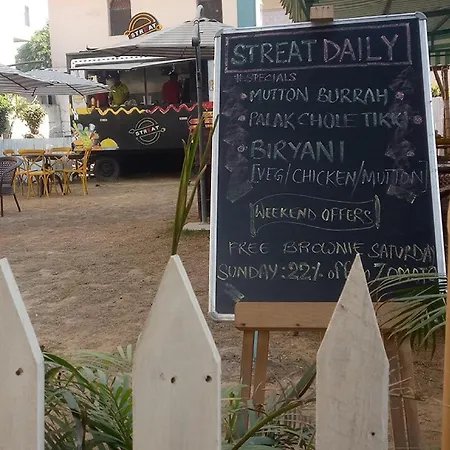 STREAT
STREAT
STREAT DAILY
#SPECIALS
• MUTTON BURRAH
• PALAK CHOLE TIKKI
• BIRYANI
[VEG/CHICKEN/MUTTON]
WEEKEND OFFERS
FREE BROWNIE SATURDAY
SUNDAY: 22% off ZOMATO